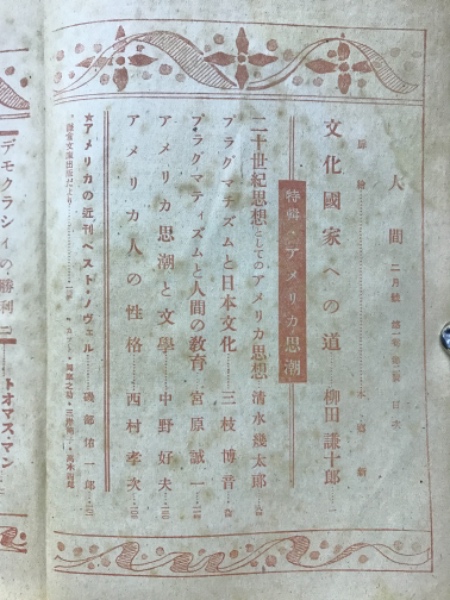 人間 二月號 目次
文化國家への道 柳田謙十郎
特輯・アメリカ思潮
二十世紀思想としてのアメリカ思想 清水幾太郎
プラグマチズムと日本文化 三枝博音
プラグマティズムと人間の教育 宮原誠一
アメリカ思潮と文學 中野好夫
アメリカ人の性格 西村孝次
★アメリカの近刊ベスト・ノヴェル 磯部佑一郎
デモクラシィの勝利(二) トオマス・マン